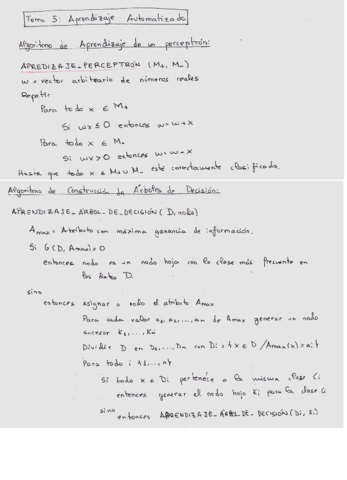 Tema 5: Aprendizaje Automatizado
Algoritmo de Aprendizaje de un perceptrón:
APREDIZAJE_PERCEPTRÓN (M+, M-)
w = vector arbitrario de números reales
Repetir
Para todo x ∈ M+
Si wx ≤ 0 entonces w = w+x
Para todo x ∈ M-
Si wx > 0 entonces w = w-x
Hasta que todo x ∈ M+ ∪ M- esté correctamente clasificado.
Algoritmo de Construcción de Árboles de Decisión:
APRENDIZAJE_ÁRBOL_DE_DECISIÓN (D, nodo)
Amax = Atributo con máxima ganancia de información.
Si G(D, Amax) = 0
entonces nodo es un nodo hoja con la clase más frecuente en
los datos D.
sino
entonces asignar a nodo el atributo Amax
Para cada valor a1, a2, ..., an de Amax generar un nodo
sucesor K1, ..., Kn
Dividir D en D1, ..., Dn con Di = {x ∈ D / Amax(x) = ai}
Para todo i {1, ..., n}
Si todo x ∈ Di pertenece a la misma clase Ci
entonces generar el nodo hoja Ki para la clase Ci
sino
entonces APRENDIZAJE_ÁRBOL_DE_DECISIÓN (Di, Ki)